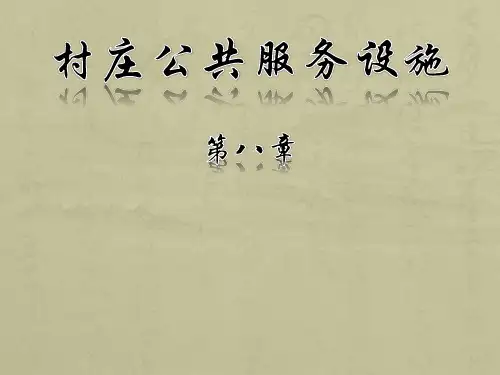 村庄公共服务设施
第八章